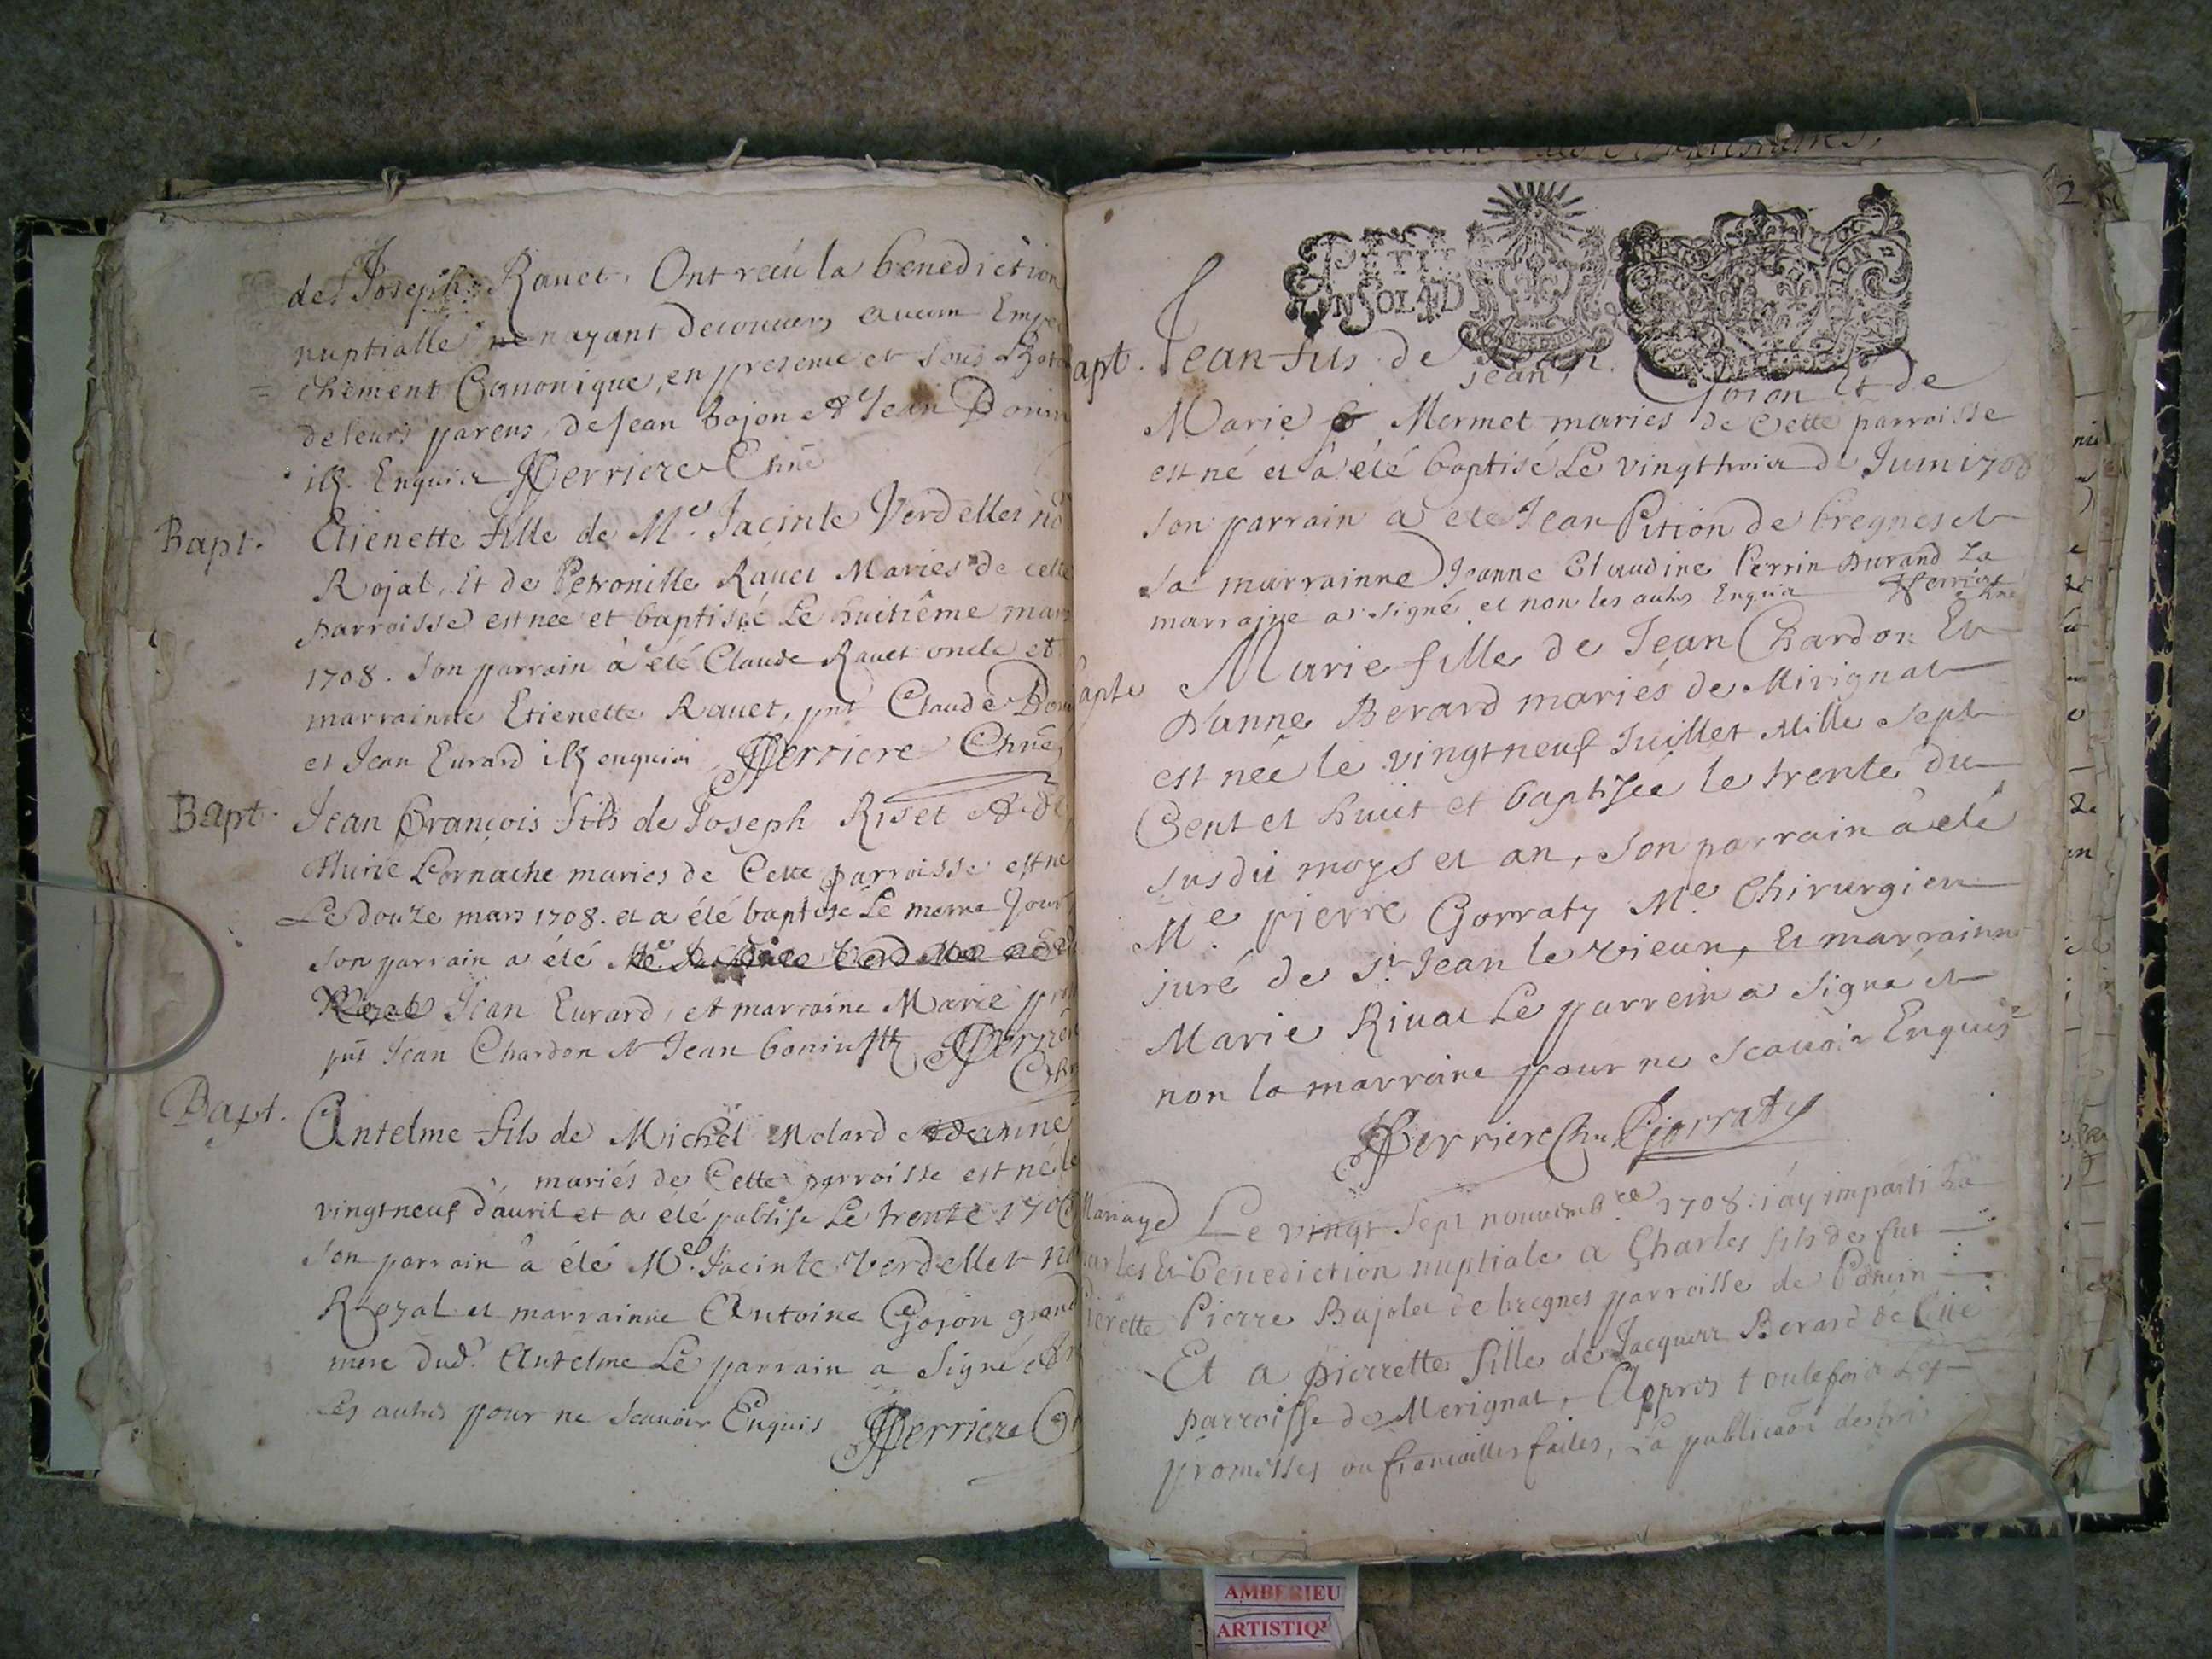 de Joseph Rauet, Ont receu la benediction
nuptialle n'ayant decouuers aucun Empe
chement Canonique, en presence et sous
de leurs parens, de Jean bojon et Jean Bonin
illz. Enquis JPerriere Chne
Bapt. Etienette fille de Me. Jacinte Verdellet no
Rojal, Et de Petronille Rauet Mariés de cette
parroisse est née et baptisée Le huitiême mars
1708. Son parrain à été Claude Rauet oncle et
marrainne Etienette Rauet, pnt Claude
et Jean Eurard illz enquis JPerriere Chne
Bapt. Jean François fils de Joseph Riset et de
Marie Cornache mariés de Cette parroisse est né
Le douze mars 1708. et a été baptisé Le meme Jour
Son parrain a été
Jean Eurard, et marraine Marie
pnt Jean Chardon et Jean bonin illz JPerriere
Chne
Bapt. Antelme fils de Michel Molard et Jeanne
mariés de Cette parroisse est né le
vingtneuf d'auril et a été babtise Le trente 1708
Son parrain à été Me. Jacinte Verdellet no
Royal et marrainne Antoine Gojon grand
mere dud. Antelme Le parrain a Signé et
Les autres pour ne scauoir Enquis JPerriere Ch
2
PETIT
UN SOL 4 D
Bapt. Jean fils de Jean
jean, Gojon Et de
Marie Mermet mariés de Cette parroisse
est né et à été baptisé Le vingt trois de Juin 1708
Son parrain a été Jean Pition de bregnes et
Sa marrainne Jeanne Claudine Perrin Durand La
marraine a signé et non les autres Enquis JPerriere Chne
Bapte Marie fille de Jean Chardon Et
D'anne Berard mariés de Mirignat
est née le vingtneuf Juillet Mille Sept
Cent et huit et baptizée le trente du
susdit moys et an, Son parrain à été
Me. pierre Gorraty Me. Chirurgien
juré de St Jean le vieux, Et marrainne
Marie Riuat Le parrein a Signé et
non la marraine pour ne Scauoir Enquis
JPerriere Chne Gorraty
Mariage Le vingt Sept nouembre 1708. i'ay imparti La
Charles Et benediction nuptiale a Charles fils de fut
Pierette Pierre Bajolet de bregnes parroisse de Poncin
Et a pierrette fille de Jacques Berard de Cette
parroisse de Merignat, Apres toutefois Les
promesses ou fiencailles faites, La publicaon
AMBERIEU
ARTISTIQU